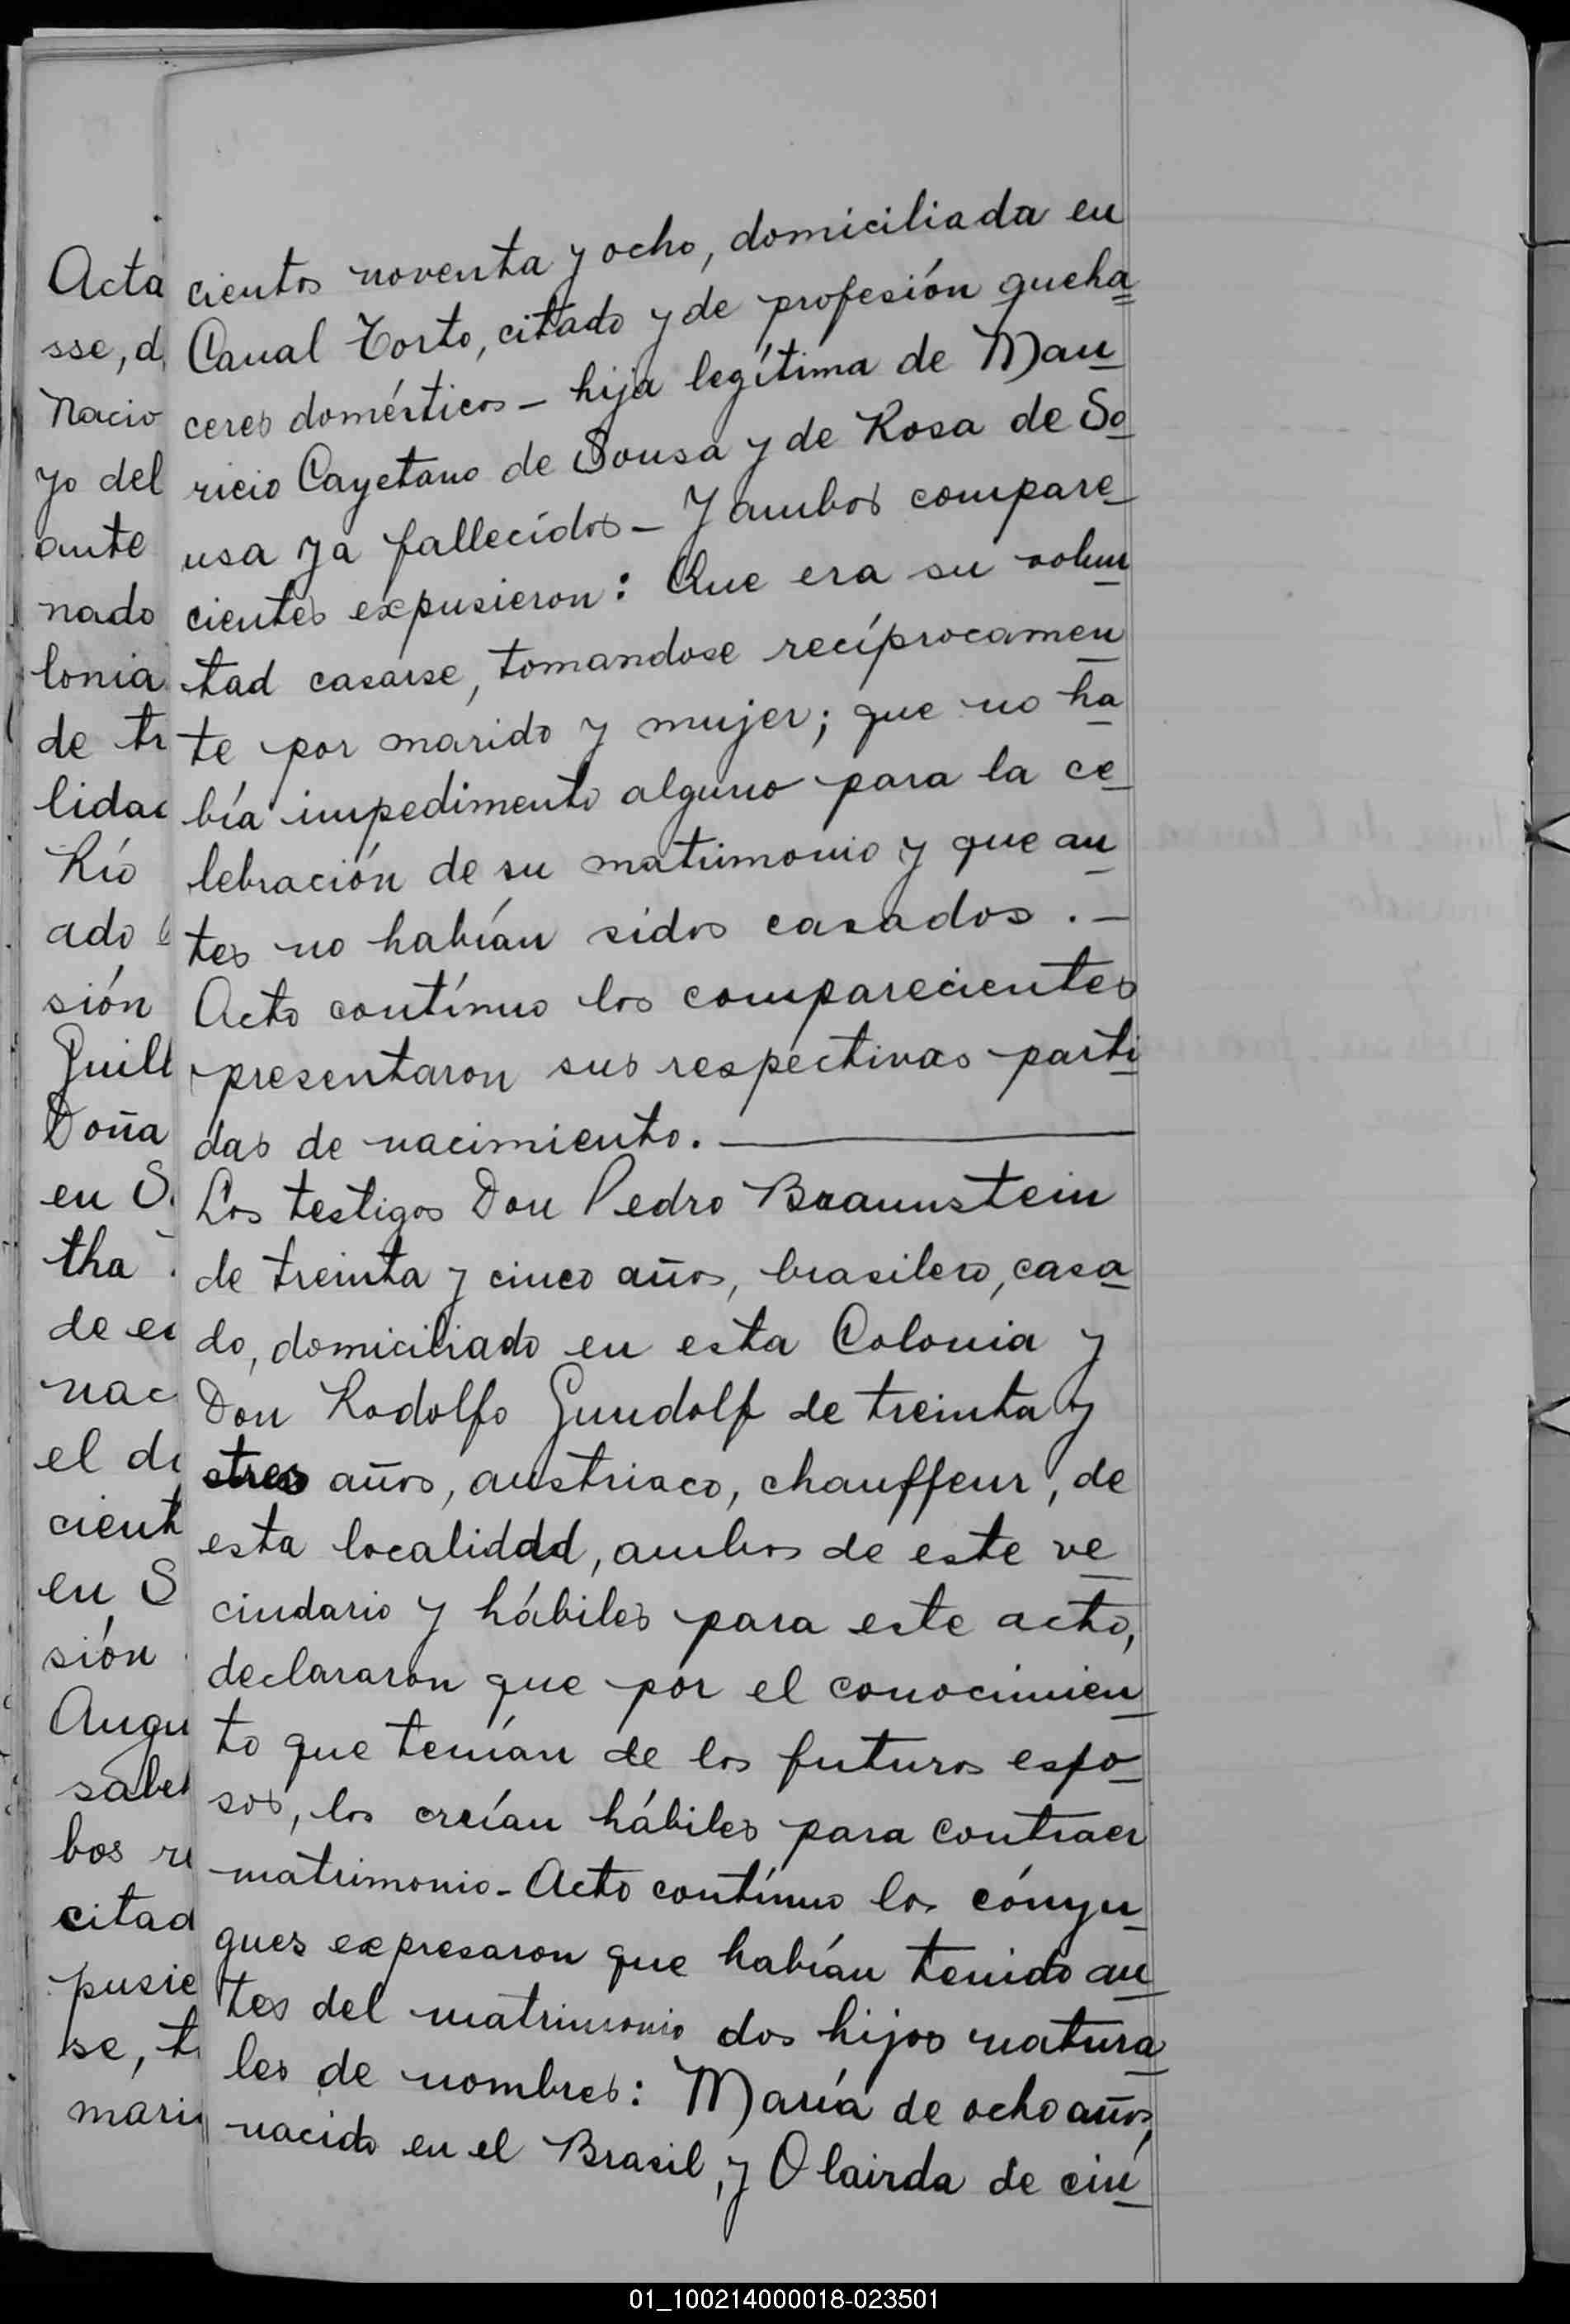 Acta
sse, d
Nacio
yo del
ante
nado
lonia
de tr
lidad
Río
ado
sión
Guill
Doña
en S
tha
de e
nac
el d
cient
en S
sión
Augu
sabe
bos re
citad
pusie
se, t
mari
cientos noventa y ocho, domiciliada en
Canal Torto, citado y de profesión queha
ceres domésticos - hija legítima de Mau
ricio Cayetano de Sousa y de Rosa de So
usa ya fallecidos - Y ambos compare
cientes expusieron: Que era su volun
tad casarse, tomandose recíprocamen
te por marido y mujer; que no ha
bía impedimento alguno para la ce
lebración de su matrimonio y que an
tes no habían sidos casados. -
Acto contínuo los comparecientes
presentaron sus respectivas parti
das de nacimiento.
Los testigos Don Pedro Braunstein
de treinta y cinco años, brasilero, casa
do, domiciliado en esta Colonia y
Don Rodolfo Gundolf de treinta y
tres años, austriaco, chauffeur, de
esta localidad, ambos de este ve
cindario y hábiles para este acto,
declararon que por el conocimien
to que tenían de los futuros espo
sos, los creían hábiles para contraer
matrimonio - Acto contínuo los cónyu
gues expresaron que habían tenido an
tes del matrimonio dos hijos natura
les de nombres: María de ocho años,
nacido en el Brasil, y Olairda de cin
01_100214000018-023501